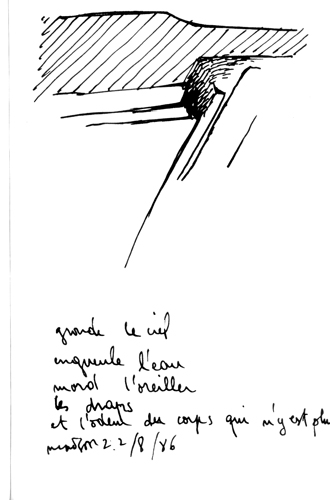 gronde le ciel
engueule l'eau
mord l'oreiller
les draps
et l'odeur du corps qui n'y est plu
2.2/8/86